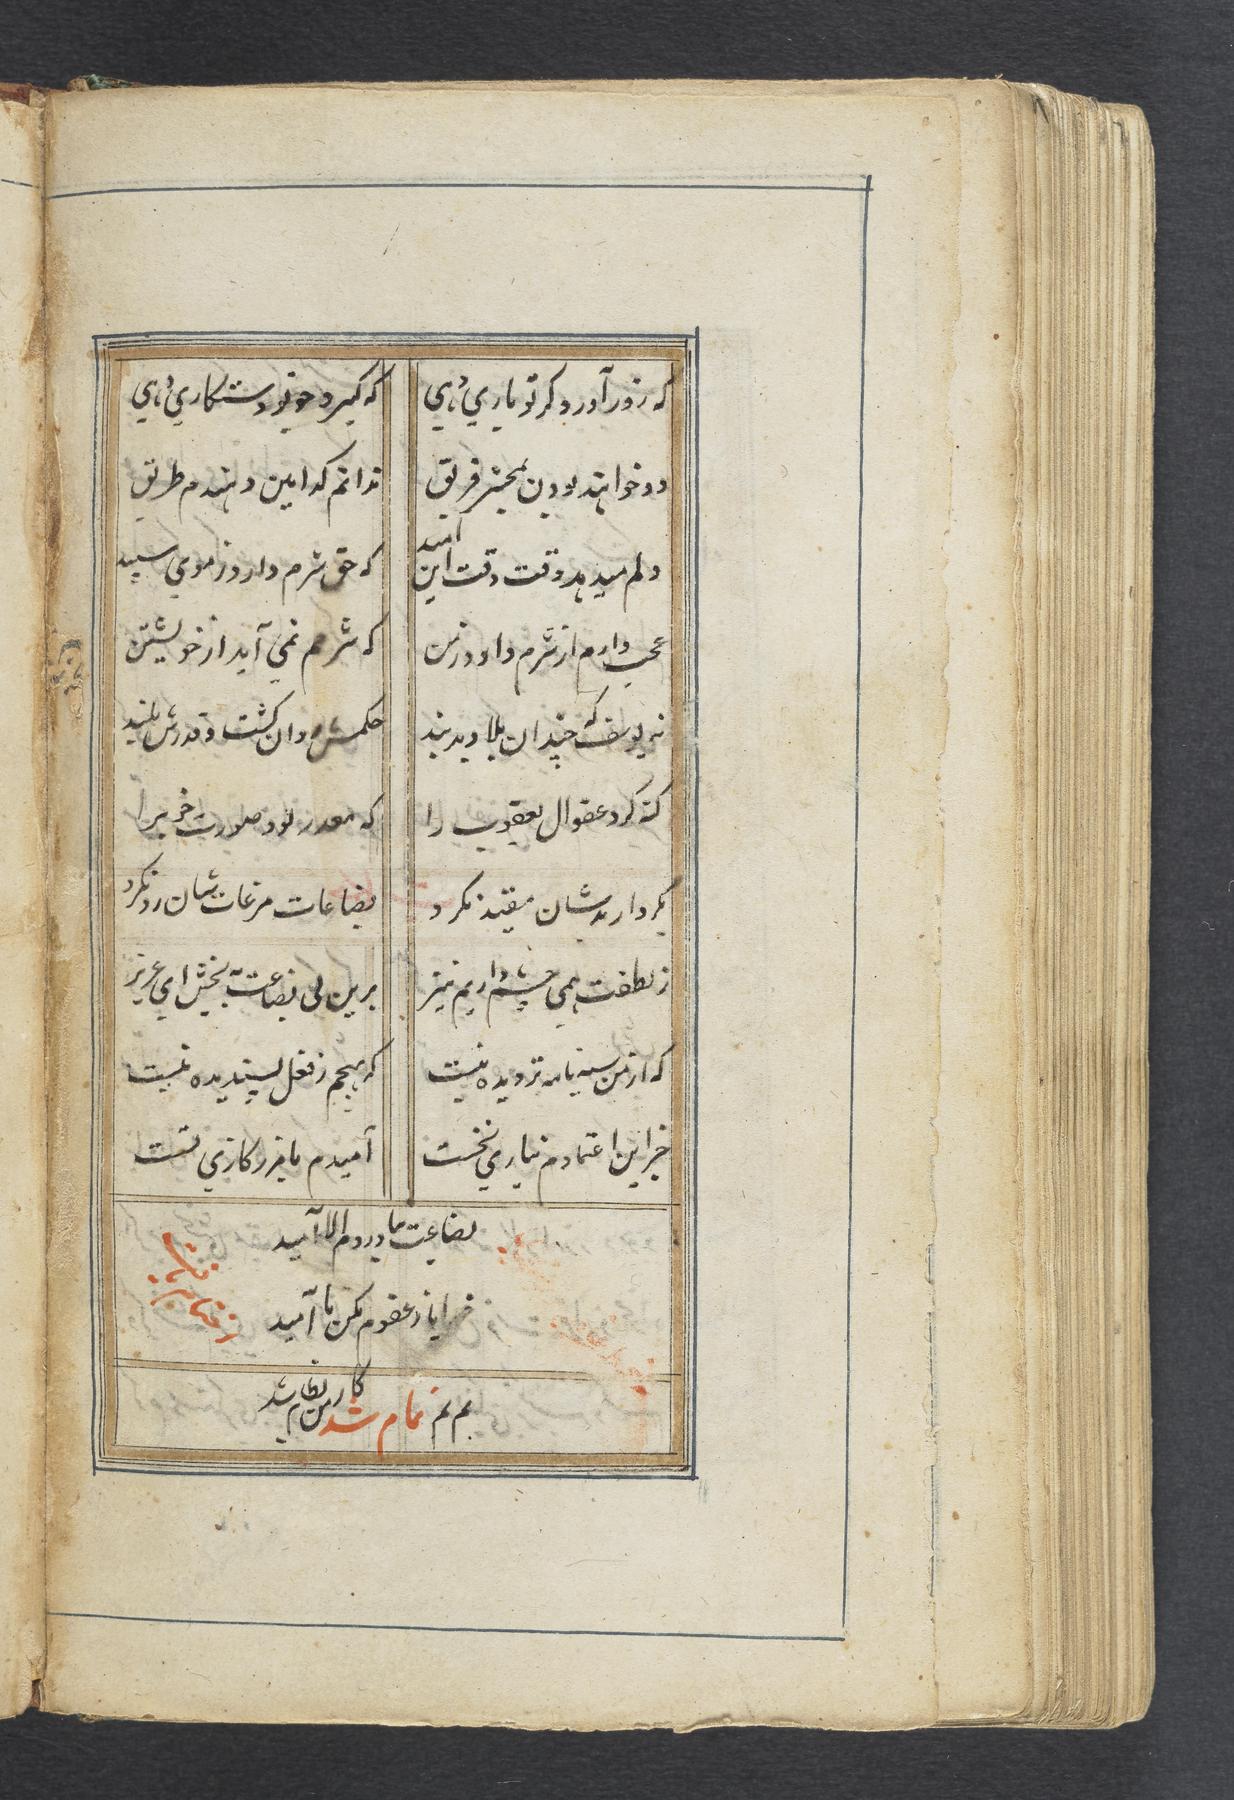 که زور آورد گر تو یاری دهی که گیرد چو تو رستکاری دهی
دو خواهند بودن بمحشر فریق ندانم کدامین دهندم طریق
دلم میدهد وقت وقت این امید که حق شرم دارد ز موی سپید
عجب دارم از شرم دارد ز من که شرمم نمی آید از خویشتن
نه یوسف که چندان بلا دید و بند چو حکمش روان گشت و قدرش بلند
گنه کرد عفو آل یعقوب را که معنی بود صورت خوب را
بکردار بدشان مقید نکرد بضاعات مزجات شان رد نکرد
ز لطفت همی چشم داریم نیز برین بی بضاعت ببخش ای عزیز
که از من سیه نامه تر دیده نیست که هیچم ز فعل پسندیده نیست
جز این اعتمادم بیاری تست امیدم بامرزکاری تست
بضاعت نیاوردم الا امید
خدایا ز عفوم مکن نا امید
تمام شد
کار من نظام شد